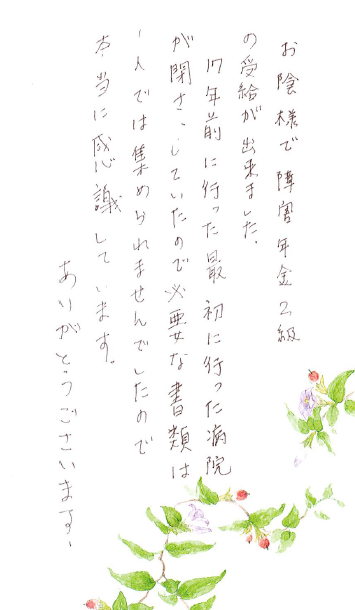 お陰様で障害年金2級
の受給が出来ました。
17年前に行った最初に行った病院
が閉さ、していたので必要な書類は
一人では集められませんでしたので
本当に感謝しています。
ありがとうございます。